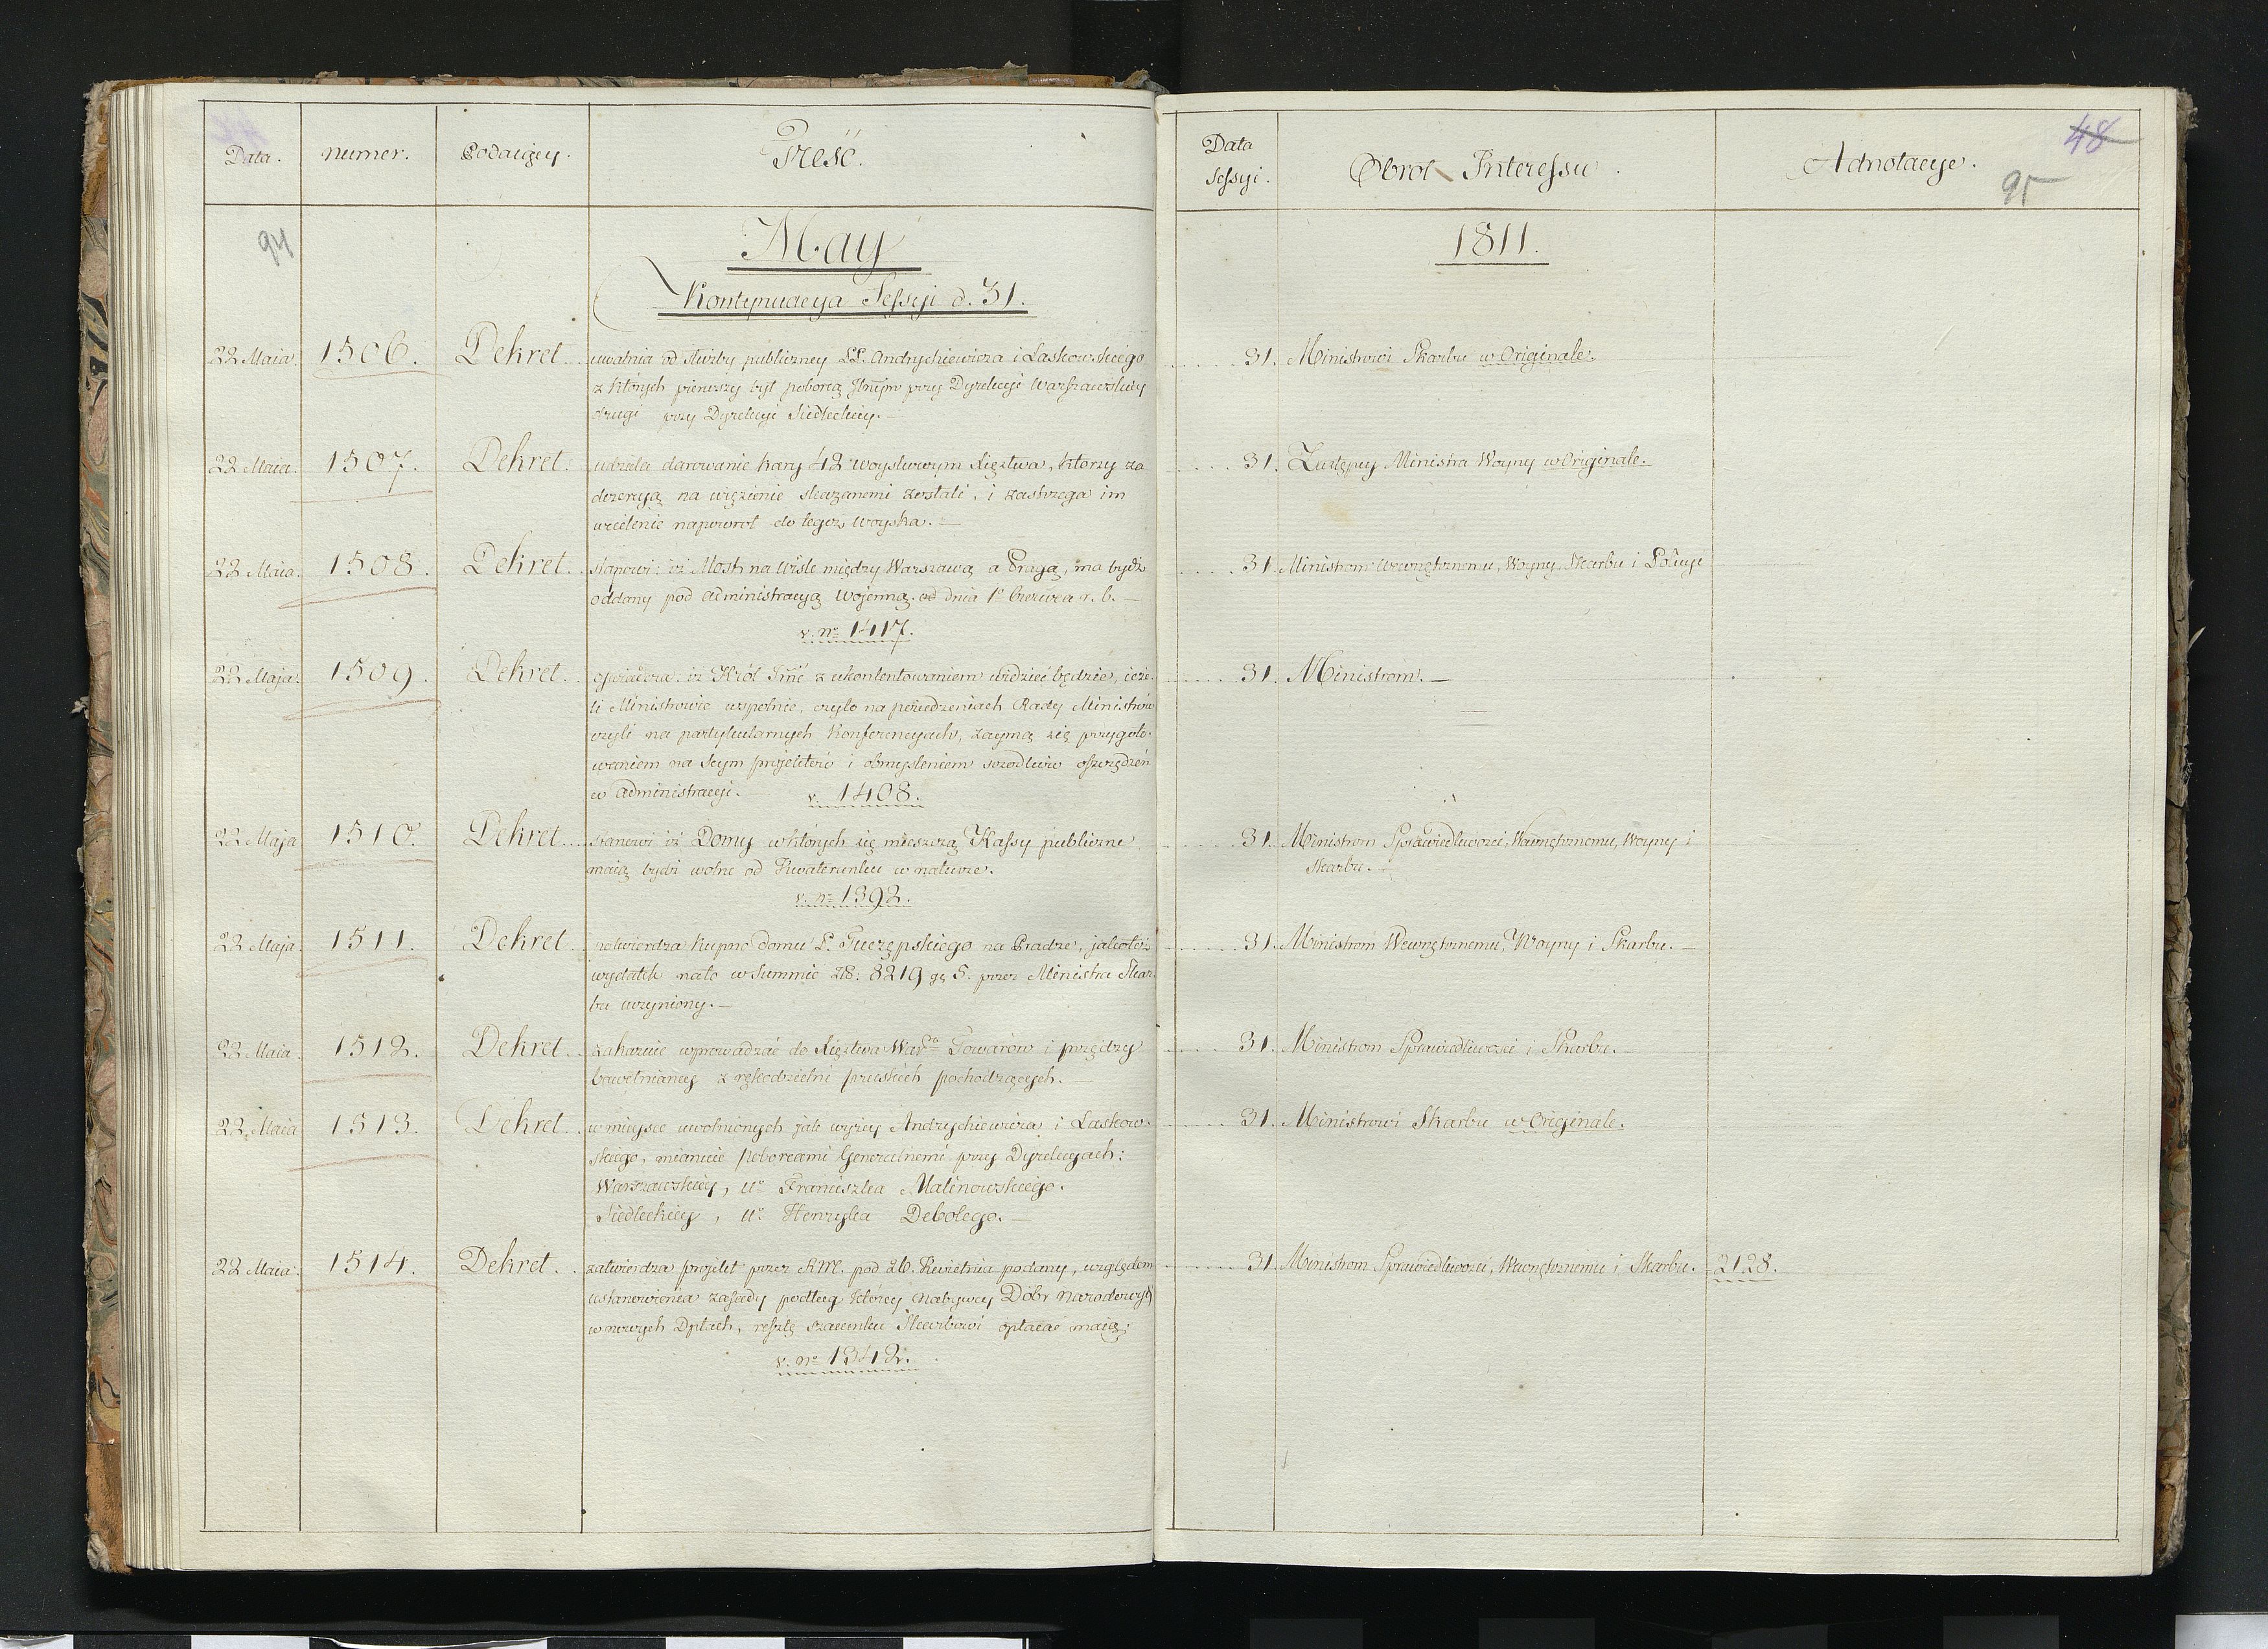 Data. Numer. Podaiący. Treść. Data Sessyi. Obrot Interessu. Adnotacye. 48
95
94
May 1811.
Kontynuacya Sessyi d. 31.
22 Maia. 1506. Dekret. uwalnia od służby publiczney PP. Andrychiewicza i Laskowskiego 31. Ministrowi Skarbu w Originale.
z których pierwszy był poborcą przy Dyrekcyi Warszawskiey
drugi przy Dyrekcyi Siedleckiey.—
22 Maia. 1507. Dekret. udziela darowanie kary 42 woyskowym Xięztwa, którzy za 31. Zastępcy Ministra Woyny w Originale.
dezercyą na więzienie skazanemi zostali, i zastrzega im
wcielenie napowrot do tegoż woyska.—
22 Maia. 1508. Dekret. stanowi: iż Most na Wiśle między Warszawą a Pragą, ma bydź 31. Ministrom Wewnętrznemu, Woyny, Skarbu i Policyi
oddany pod administracyą Wojenną od dnia 1o Czerwca r. b.—
v. no 1417.
22 Maja. 1509. Dekret. oświadcza: iż Król Jmć z ukontentowaniem widzieć będzie, ieże- 31. Ministrom.—
li Ministrowie wspolnie, czyto na posiedzeniach Rady Ministrów
czyli na partykularnych Konferencyach, zaymą się przygoto-
waniem na Seym projektów i obmysleniem srzodków oszczędzeń
w administracyi.— v. 1408.
22 Maja 1510. Dekret. stanowi iż Domy w których się mieszczą Kassy publiczne 31. Ministrom Sprawiedliwości, Wewnętrznemu, Woyny i
maią bydź wolne od Kwaterunku w naturze. Skarbu.—
v. no 1392.
22 Maja. 1511. Dekret. zatwierdza kupno domu P. Tuczępskiego na Pradze, jakoteż 31. Ministrom Wewnętrznemu, Woyny i Skarbu.—
wydatek nato w Summie zł: 8219 gr 5. przez Ministra Skar-
bu uczyniony.—
22 Maia. 1512. Dekret. zakazuie wprowadzać do Xięztwa Warso Towarów i przędzy 31. Ministrom Sprawiedliwości i Skarbu.—
bawełnianey z rękodzielni pruskich pochodzących.—
22 Maia 1513. Dekret. w mieysce uwolnionych jak wyżey Andrychiewicza i Laskow- 31. Ministrowi Skarbu w Originale.
skiego, mianuie Poborcami Generalnemi przy Dyrekcyach:
Warszawskiey, Uo Franciszka Malinowskiego.
Siedleckiey, Uo Henryka Debolego.—
22 Maia. 1514. Dekret. zatwierdza projekt przez RM. pod 26. Kwietnia podany, względem 31. Ministrom Sprawiedliwości, Wewnętrznemu i Skarbu. 2128.
ustanowienia zasady podług którey Nabywcy Dóbr Narodowych
w nowych Dptach, resztę szacunku Skarbowi opłacać maią.
v. no 1342.